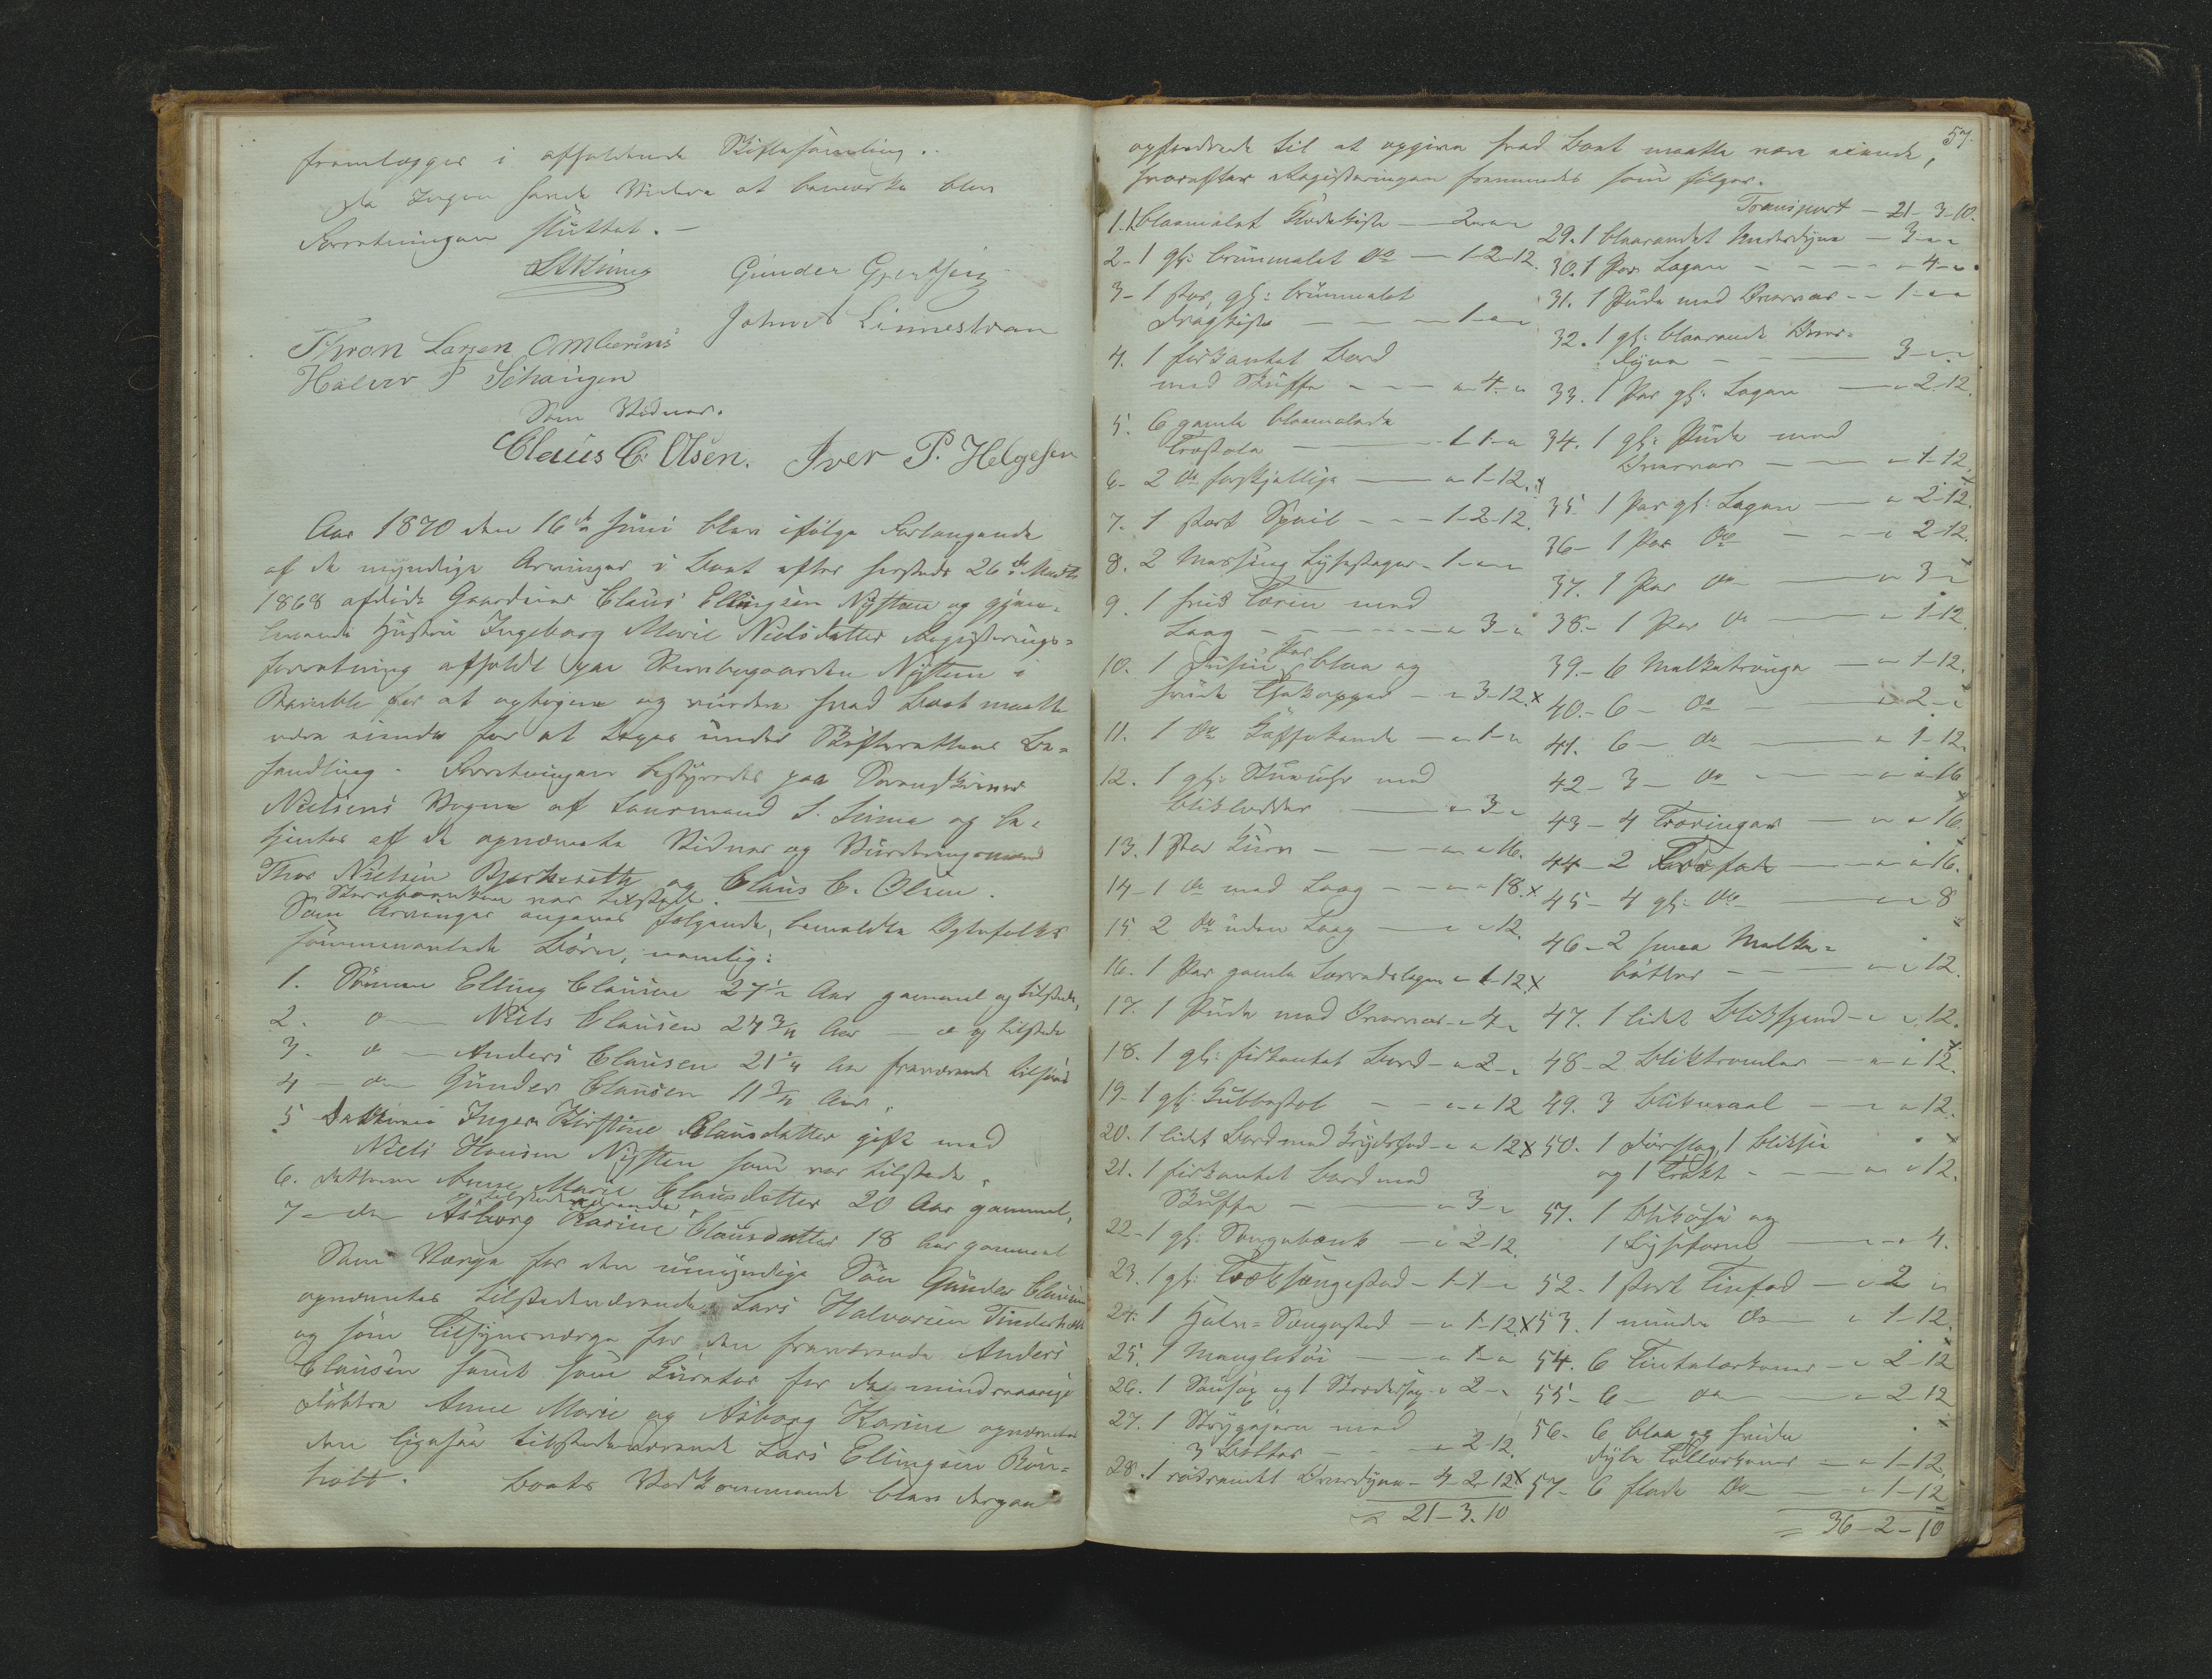 fremlægges i afholdende Skiftesamling.
Da Ingen havde Videre at bemærke blev
Forretningen sluttet.
Gunder Gjertsen
Johnes Linnestran
Thron Larsen Omberens
Halvor P Schougen
Som Vidner.
Claus C. Olsen. Iver P. Helgesen
Aar 1870 den 16de Juni blev ifølge Forlangende
af de myndige Arvinger i Boet efter hersteds 26de Marts
1868 afdøde Gaardeier Claus Ellingsen Nysteen og gjen-
levende Hustru Ingeborg Marie Nielsdatter Registrerings-
forretning afholdt paa Stervbogaarden Nysteen i
Bamble for at optegne og vurdere hvad Boet maatte
være eiende for at tages under Skifterettens Be-
handling. Forretningen bestyredes paa Sorenskriver
Nielsens Vegne af Lensmand S. Sinnes og be-
tjentes af de opnævnte Vidner og Vurderingsmænd
Thor Nielsen Bjerkeseth og Claus C. Olsen.
Stervboenken var tilstede.
Som Arvinger angaves følgende, bemeldte Egtefolks
sammenavlede Børn, nemlig:
1. Sønnen Elling Clausen 27½ Aar gammel og tilstede,
2. do Niels Clausen 24¾ Aar do og tilstede
3. do Anders Clausen 21¼ Aar fraværende tilsøes
4 do Gunder Clausen 11¾ Aar,
5 Datteren Inger Kirstine Clausdatter gift med
Niels Hansen Nysteen som var tilstede,
6. datteren Anne Marie Clausdatter 20 Aar gammel,
tilstedeværende
7 do Asborg Karine Clausdatter 18 Aar gammel
Som Værge for den umyndige Søn Gunder Clausen
opnævntes tilstedeværende Lars Halvorsen Tinderholt
og som Tilsynsværge for den fraværende Anders
Clausen samt som Curator for de mindreaarige
døttre Anne Marie og Asborg Karine opnævntes
den ligesaa tilstedeværende Lars Ellingsen Røn-
holt. Boets Vedkommende blev derpaa
57.
opfordrede til at opgive hvad Boet maatte være eiende,
hvorefter Registeringen fremmedes som følger.
1. 1 blaamalet Klædekiste – 2 „ „
2 – 1 gl: brunmalet do – 1-2-12.
3 – 1 stor, gl: brunmalet
Dragkiste – 1 „ „
4. 1 firkantet Bord
med Skuffe – „ 4 „
5. 6 gamle blaamalede
Træstole – 1-1 „
6 – 2 do forskjellige – „ 1-12. x
7. 1 stort Speil – 1-2-12.
8. 2 Messing Lysestager – 1 „ „
9. 1 hvid Terin med
Laag – „ 3 „
10. 1 Dusin Par blaa og
hvide Thekopper – „ 3-12. x
11. 1 do Kaffekande – „ 1 „
12. 1 gl: Stueuhr med
bliklodder – „ 3 „
13. 1 stor Kurv – „ „ 16.
14 – 1 do med Laag – „ „ 18. x
15 2 do uden Laag – „ „ 12.
16. 1 Par gamle Lærredslagen „ 1-12 x
17. 1 Pude med Dunvar – „ 4 „
18. 1 gl: firkantet Bord – „ 2 „
19 – 1 gl: Kubbestol – „ „ 12
20. 1 lidet Bord med Krydsfod – „ „ 12 x
21. 1 firkantet bord med
Skuffe – „ 3 „
22 – 1 gl: Sengebænk – „ 2-12.
23. 1 gl: Træksengested – 1-1 „
24. 1 Halv-Sengested – „ 1-12 x
25. 1 Mangletøi – „ 1 „
26. 1 Langsax og 1 Skrædersax „ 2 „
27. 1 Strygejern med
3 Bolter – „ 2-12.
28. 1 rødrandet Overdyne – 4-2-12 x
21-3.10
Transport – 21-3-10.
29. 1 blaarandet Underdyne – 3 „ „
30. 1 Par Lagen – „ 4 „
31. 1 Pude med Dunvar – 1 „ „
32. 1 gl: blaarandet Over-
dyne – 3 „ „
33. 1 Par gl: Lagen – „ 2-12.
34. 1 gl: Pude med
Dunvar – „ 1-12.
35 1 Par gl: Lagen – „ 2-12.
36 – 1 Par do – „ 2-12.
37. 1 Par do – „ 3 „
38. – 1 Par do – „ 1-12.
39. – 6 Melketruge – „ 1-12.
40. – 6 – do – „ 2 „
41. 6 – do – „ 1-12.
42 – 3 – do – „ „ 16
43 – 4 Træringer – „ „ 16.
44 – 2 Træfade – „ „ 16.
45 – 4 gl: do – „ „ 8
46 – 2 smaa Melke-
bøtter – „ „ 12.
47. 1 lidet Blikspand – „ „ 12.
48 – 2 Bliktromler – „ „ 12.
49. 3 Blikmaal – „ „ 12.
50. 1 Dørslag, 1 bliksie
og 1 Trakt – „ „ 12.
51. 1 Blikøse og
1 Lyseform – „ „ 4.
52 – 1 stort Tinfad – „ 2 „
53. 1 mindre do – „ 1-12.
54. 6 Tintalerkener – „ 2-12
55 – 6 – do – „ 2-12
56 – 6 blaa og hvide
dybe Tallerkener – „ 1-12,
57 – 6 flade do – „ 1-12
36-2-10